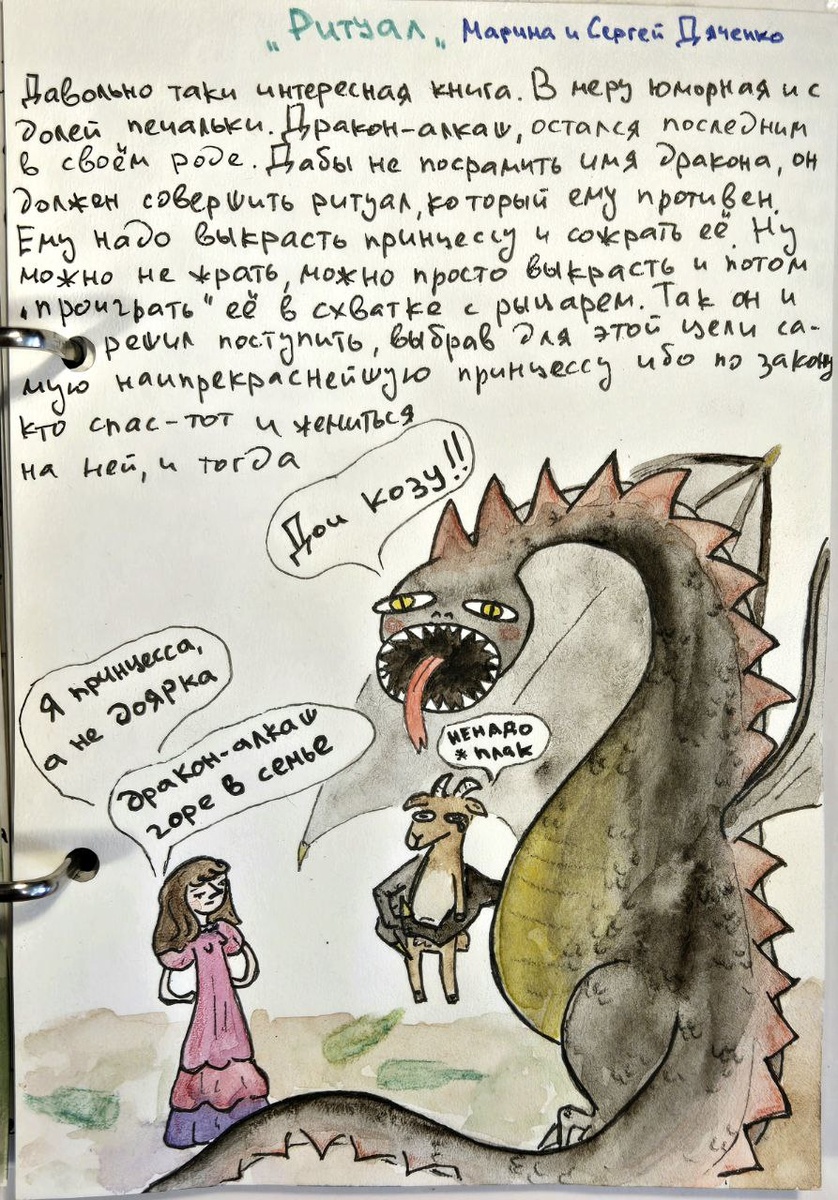 „Ритуал„ Марина и Сергей Дяченко
Давольно таки интересная книга. В меру юморная и с
долей печальки. Дракон-алкаш, остался последним
в своём роде. Дабы не посрамить имя дракона, он
должен совершить ритуал, который ему противен.
Ему надо выкрасть принцессу и сожрать её. Ну
можно не жрать, можно просто выкрасть и потом
„проиграть" её в схватке с рыцарем. Так он и
решил поступить, выбрав для этой цели са-
мую наипрекраснейшую принцессу ибо по закону
кто спас-тот и жениться
на ней, и тогда
Дои козу!!
Я принцесса,
а не доярка
дракон-алкаш
горе в семье
ненадо
*плак